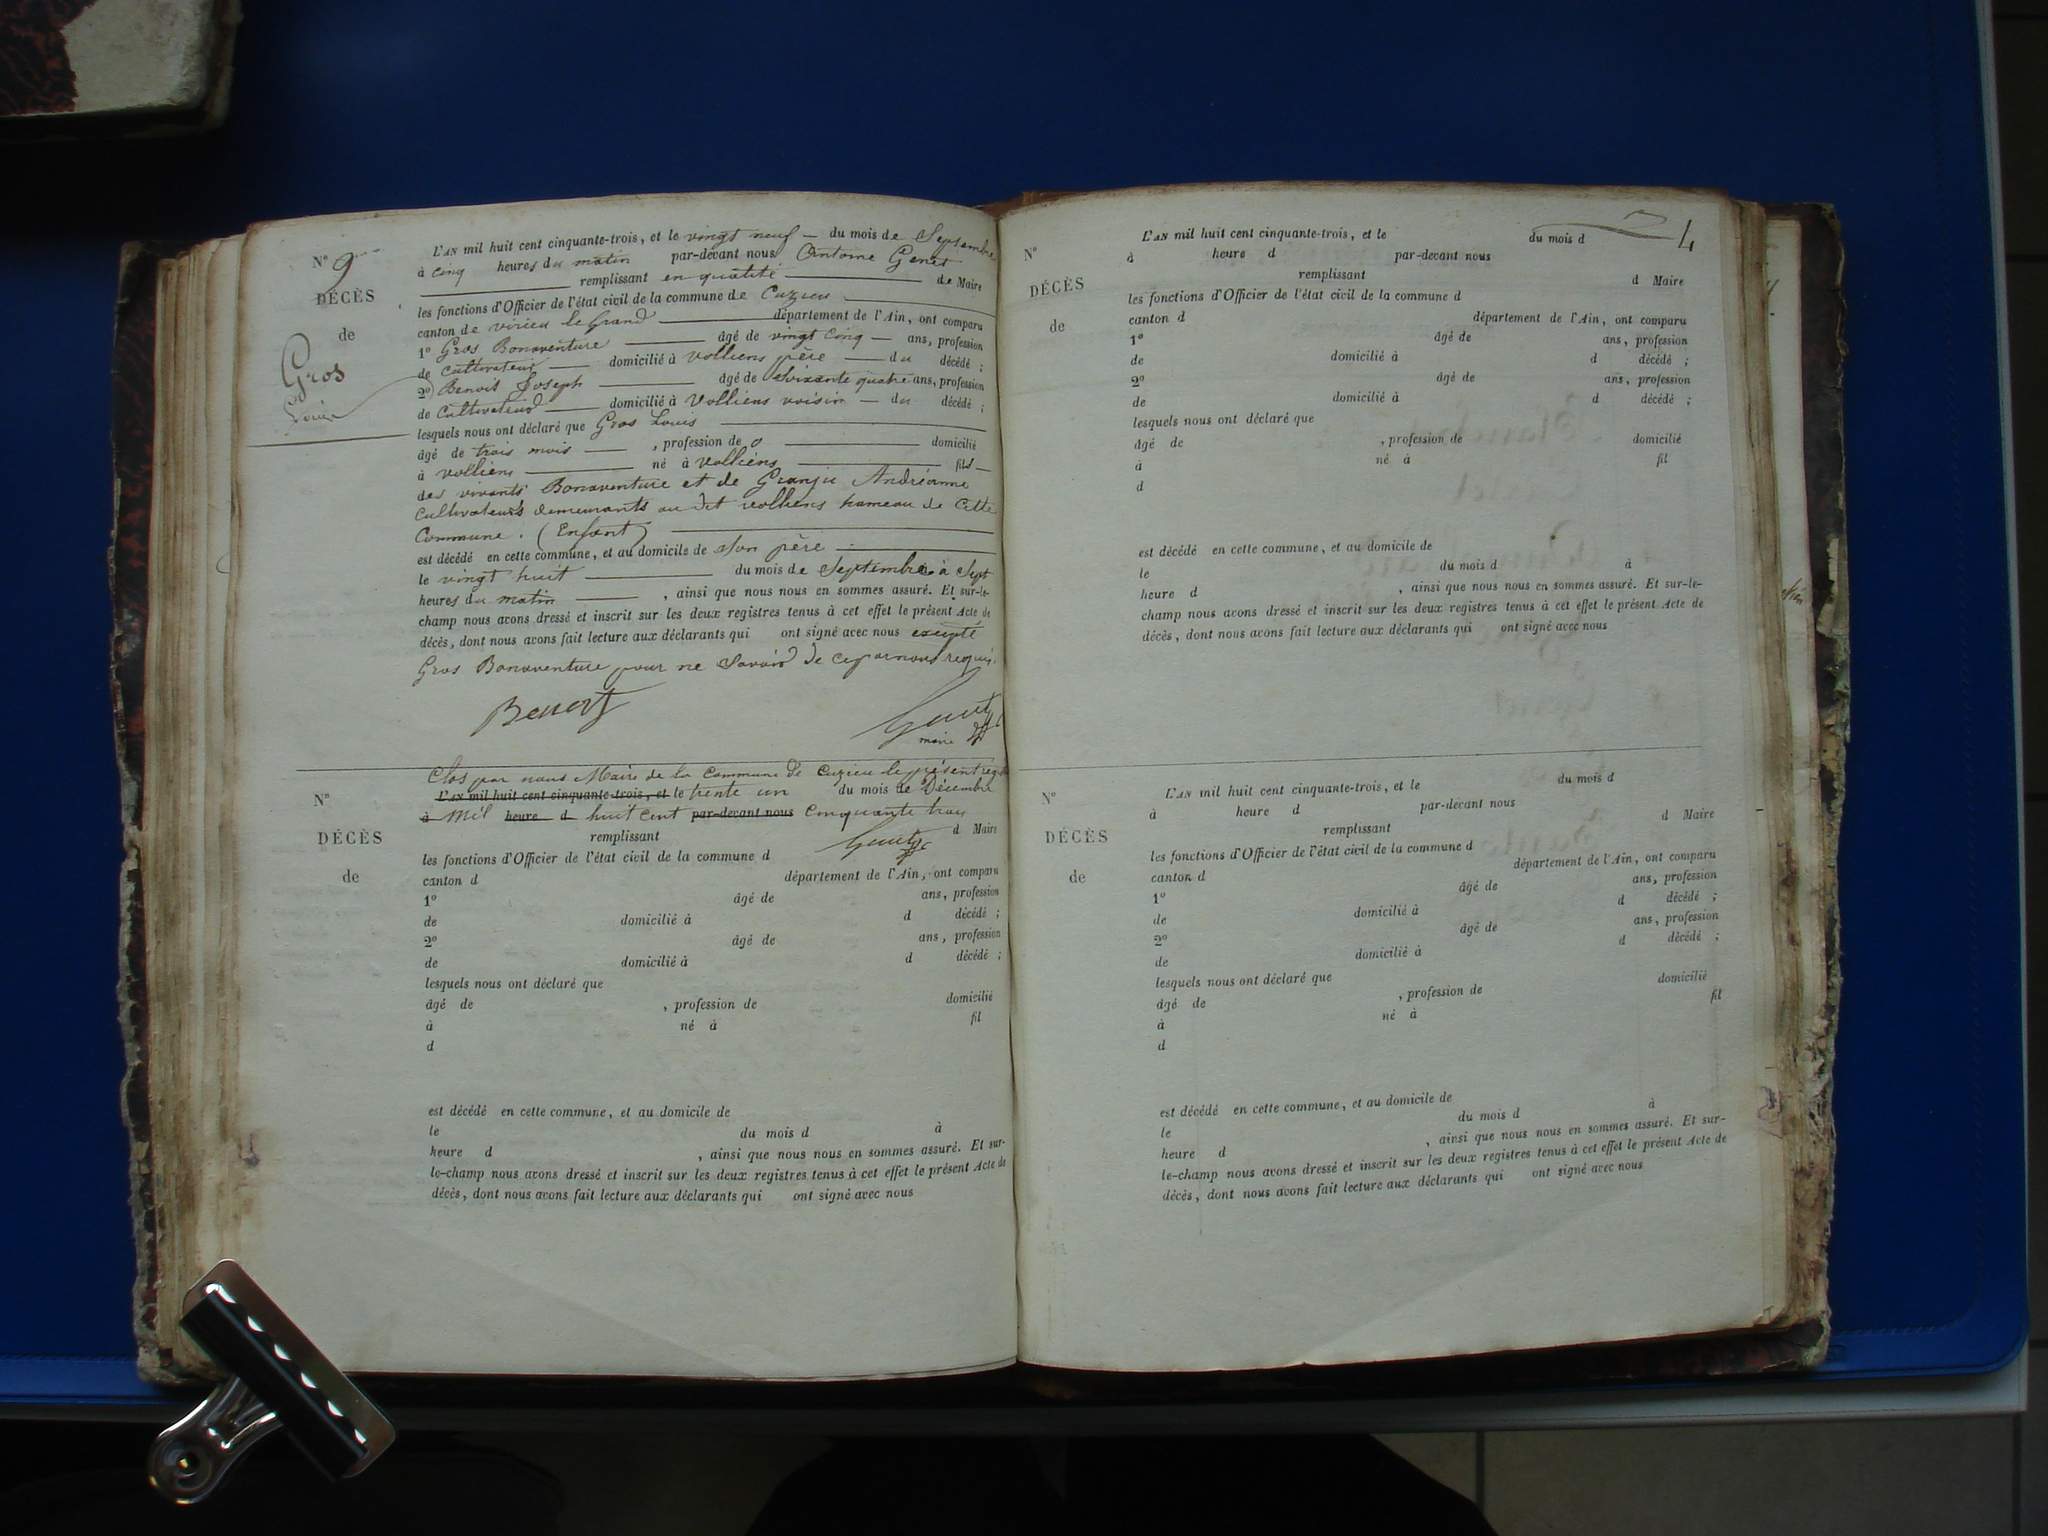 N° 9
DÉCÈS
de
Gros
Louis
L'AN mil huit cent cinquante-trois, et le vingt neuf du mois de Septembre
à cinq heures du matin par-devant nous Antoine Genet
remplissant en qualité de Maire
les fonctions d'Officier de l'état civil de la commune de Cuzieu
canton de virieu le Grand département de l'Ain, ont comparu
1° Gros Bonaventure âgé de vingt cinq ans, profession
de cultivateur domicilié à volliens père du décédé ;
2° Benoit Joseph âgé de Soixante quatre ans, profession
de Cultivateur domicilié à Volliens voisin du décédé ;
lesquels nous ont déclaré que Gros Louis
âgé de trois mois , profession de o domicilié
à volliens né à Volliens fils
des vivants Bonaventure et de Granju Andréanne
Cultivateurs demeurants au dit volliens hameau de Cette
Commune. (Enfant)
est décédé en cette commune, et au domicile de Son père
le vingt huit du mois de Septembre à Sept
heures du matin , ainsi que nous nous en sommes assuré. Et sur-le-
champ nous avons dressé et inscrit sur les deux registres tenus à cet effet le présent Acte de
décès, dont nous avons fait lecture aux déclarants qui ont signé avec nous excepté
Gros Bonaventure pour ne Savoir de ce par nous requis.
Benoit
Genet
maire
Clos par nous Maire de la Commune de Cuzieu le présent
N°
DÉCÈS
de
L'AN mil huit cent cinquante-trois, et le trente un du mois de Décembre
à Mil heure d huit Cent par-devant nous Cinquante trois
remplissant Genet d Maire
les fonctions d'Officier de l'état civil de la commune d
canton d département de l'Ain, ont comparu
1° âgé de ans, profession
de domicilié à d décédé ;
2° âgé de ans, profession
de domicilié à d décédé ;
lesquels nous ont déclaré que
âgé de , profession de domicilié
à né à fil
d
est décédé en cette commune, et au domicile de
le du mois d à
heure d , ainsi que nous nous en sommes assuré. Et sur-
le-champ nous avons dressé et inscrit sur les deux registres tenus à cet effet le présent Acte de
décès, dont nous avons fait lecture aux déclarants qui ont signé avec nous
4
N°
DÉCÈS
de
L'AN mil huit cent cinquante-trois, et le du mois d
à heure d par-devant nous
remplissant d Maire
les fonctions d'Officier de l'état civil de la commune d
canton d département de l'Ain, ont comparu
1° âgé de ans, profession
de domicilié à d décédé ;
2° âgé de ans, profession
de domicilié à d décédé ;
lesquels nous ont déclaré que
âgé de , profession de domicilié
à né à fil
d
est décédé en cette commune, et au domicile de
le du mois d à
heure d , ainsi que nous nous en sommes assuré. Et sur-le-
champ nous avons dressé et inscrit sur les deux registres tenus à cet effet le présent Acte de
décès, dont nous avons fait lecture aux déclarants qui ont signé avec nous
N°
DÉCÈS
de
L'AN mil huit cent cinquante-trois, et le du mois d
à heure d par-devant nous
remplissant d Maire
les fonctions d'Officier de l'état civil de la commune d
canton d département de l'Ain, ont comparu
1° âgé de ans, profession
de domicilié à d décédé ;
2° âgé de ans, profession
de domicilié à d décédé ;
lesquels nous ont déclaré que
âgé de , profession de domicilié
à né à fil
d
est décédé en cette commune, et au domicile de
le du mois d à
heure d , ainsi que nous nous en sommes assuré. Et sur-
le-champ nous avons dressé et inscrit sur les deux registres tenus à cet effet le présent Acte de
décès, dont nous avons fait lecture aux déclarants qui ont signé avec nous